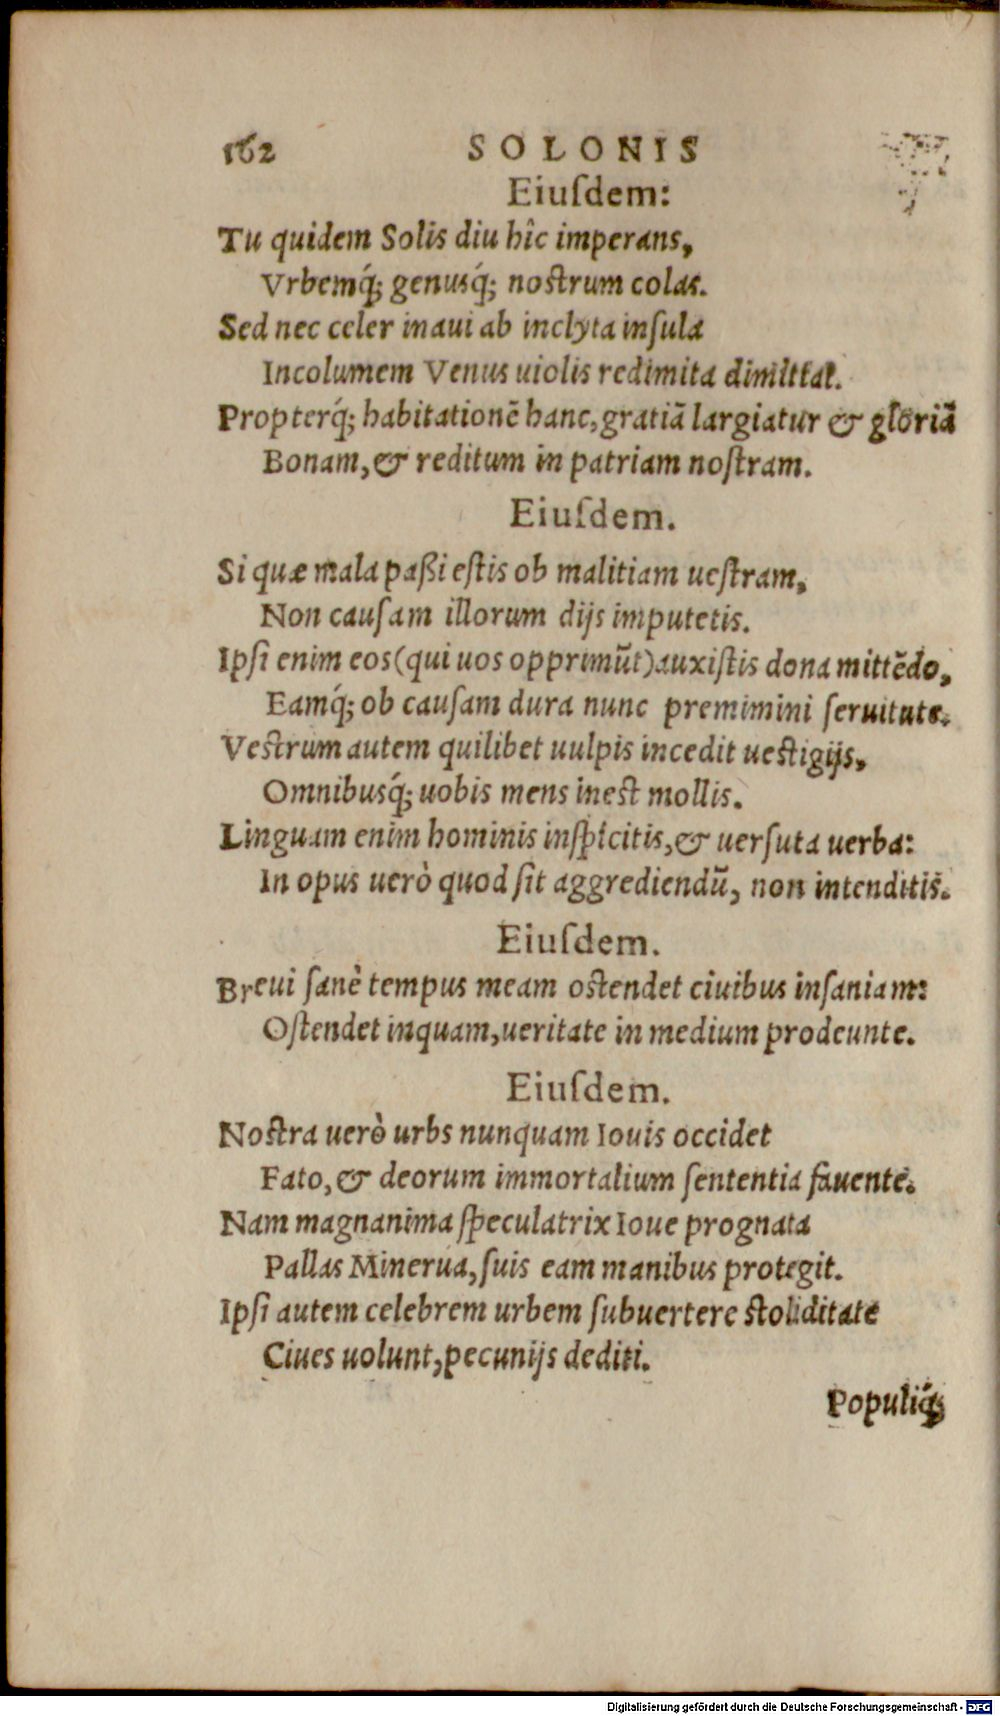 162 SOLONIS
Eiusdem:
Tu quidem Solis diu hîc imperans,
Vrbemq́; genusq́; nostrum colas.
Sed nec celer in aui ab inclyta insula
Incolumem Venus uiolis redimita dimittat.
Propterq́; habitationē hanc, gratiā largiatur & gloriā
Bonam, & reditum in patriam nostram.
Eiusdem.
Si quæ mala paßi estis ob malitiam uestram,
Non causam illorum dijs imputetis.
Ipsi enim eos (qui uos opprimūt) auxistis dona mittēdo,
Eamq́; ob causam dura nunc premimini seruitute.
Vestrum autem quilibet uulpis incedit uestigijs,
Omnibusq́; uobis mens inest mollis.
Linguam enim hominis inspicitis, & uersuta uerba:
In opus uerò quod sit aggrediendū, non intenditis.
Eiusdem.
Breui sanè tempus meam ostendet ciuibus insaniam:
Ostendet inquam, ueritate in medium prodeunte.
Eiusdem.
Nostra uerò urbs nunquam Iouis occidet
Fato, & deorum immortalium sententia fauente.
Nam magnanima speculatrix Ioue prognata
Pallas Minerua, suis eam manibus protegit.
Ipsi autem celebrem urbem subuertere stoliditate
Ciues uolunt, pecunijs dediti.
Populiq́;
Digitalisierung gefördert durch die Deutsche Forschungsgemeinschaft - DFG